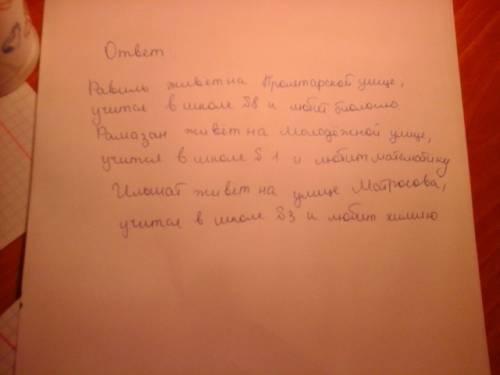 Ответ
Равиль живет на Пролетарской улице,
учится в школе S8 и любит биологию
Рамазан живёт на Молодёжной улице,
учится в школе S 1 и любит математику
Ильшат живет на улице Матросова,
учится в школе S3 и любит химию